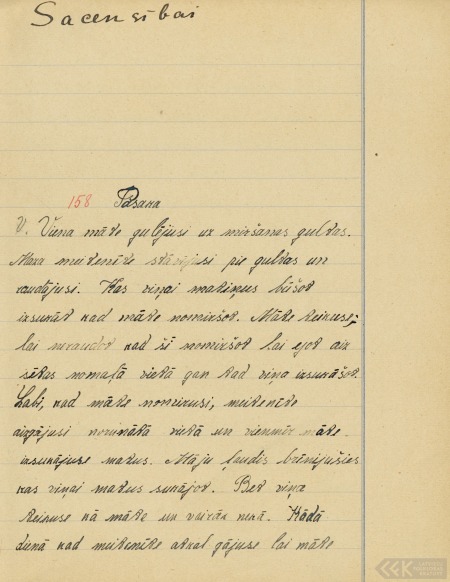 Sacensībai
158 Pasaka
V. Viena māte gulējusi uz miršanas gultas.
Maza meitenīte stāvējusi pie gultas un
raudājusi. Kas viņai matiņus būšot
izsukāt kad māte nomiršot. Māte teikuse,
lai neraudot kad šī nomiršot lai ejot aiz
sētas nomaļā vietā gan tad viņa izsukāšot.
Labi, kad māte nomirusi, meitenīte
aizgājusi norunātā vietā un vienmēr māte
izsukājuse matus. Māju ļaudis brīnijušies
kas viņai matus sukājot. Bet viņa
teikuse kā māte un vairāk nekā. Kādā
dienā kad meitenīte atkal gājuse lai māte